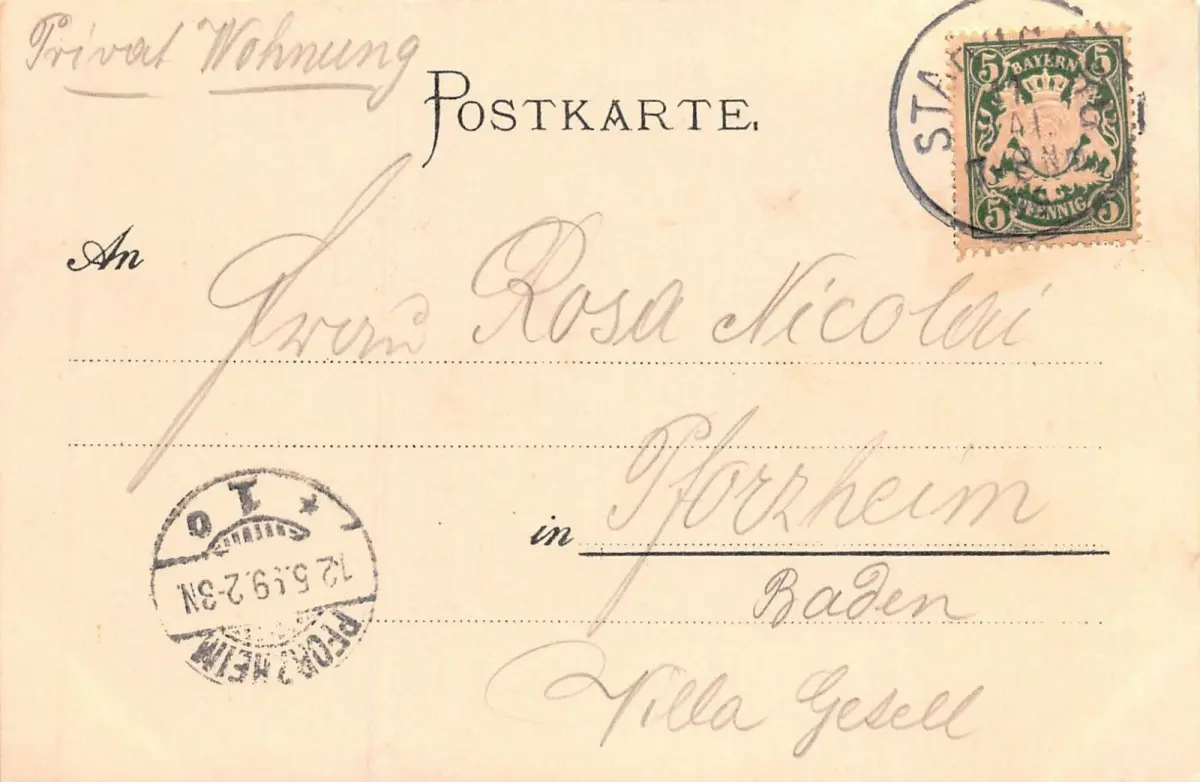 Privat Wohnung
POSTKARTE.
5 BAYERN 5
5 PFENNIG 5
An
Frau Rosa Nicolai
in Pforzheim
Baden
Villa Gesell
PFORZHEIM
12.5.99.2-3N
* 1 o